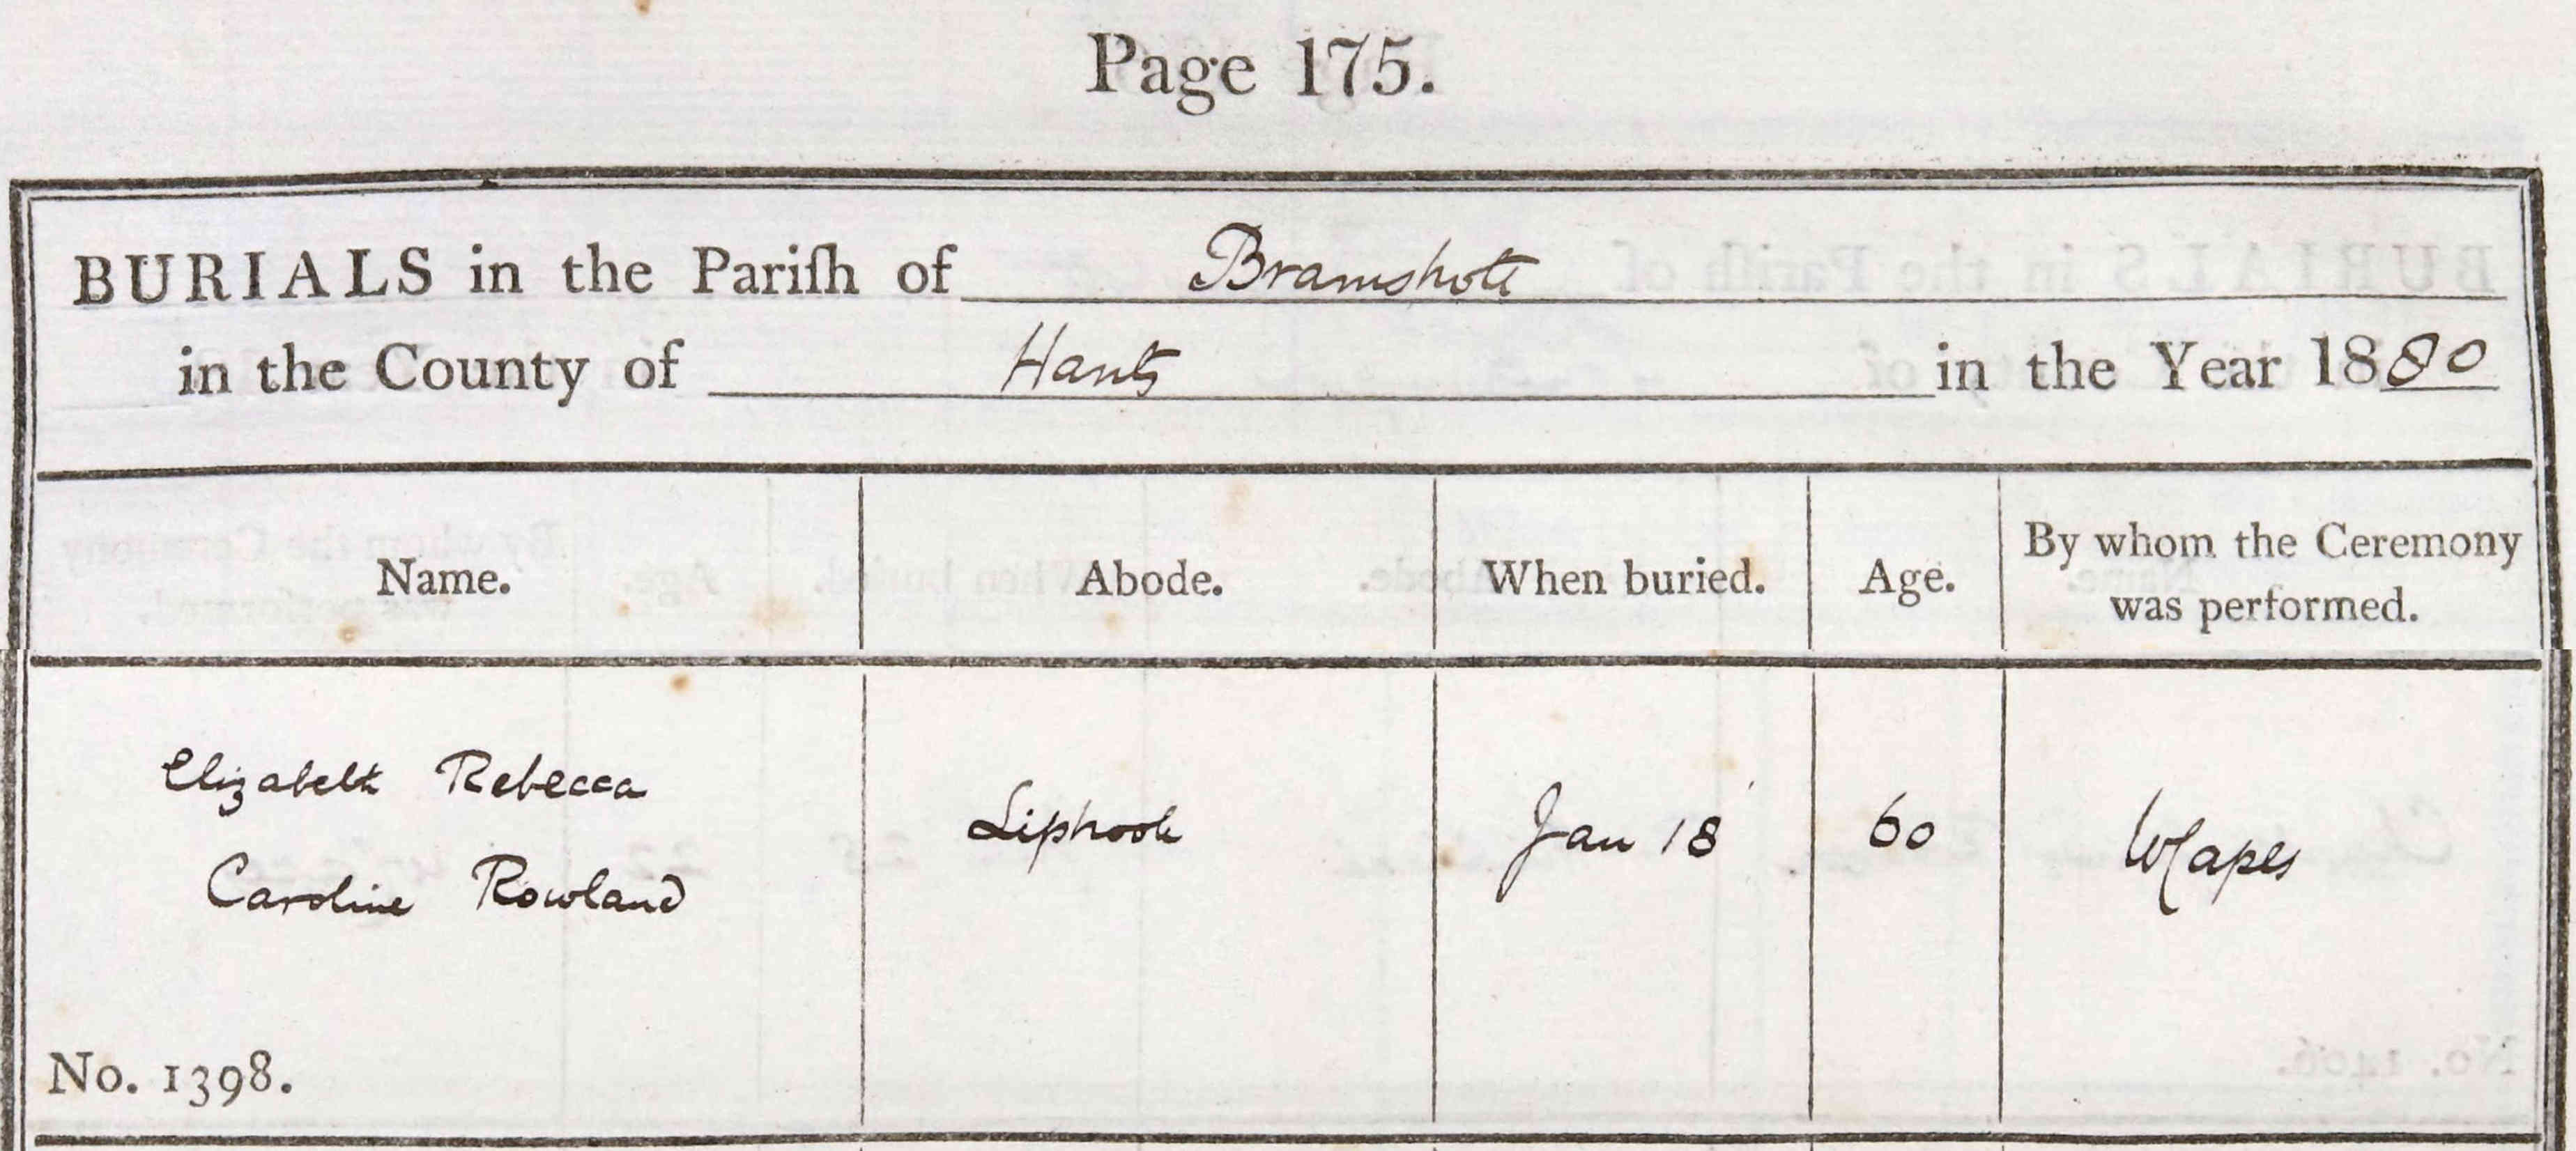 Page 175.
BURIALS in the Pariſh of Bramshott
in the County of Hants in the Year 1880
Name.
Abode.
When buried.
Age.
By whom the Ceremony
was performed.
Elizabeth Rebecca
Caroline Rowland
No. 1398.
Liphook
Jan 18
60
WCapes